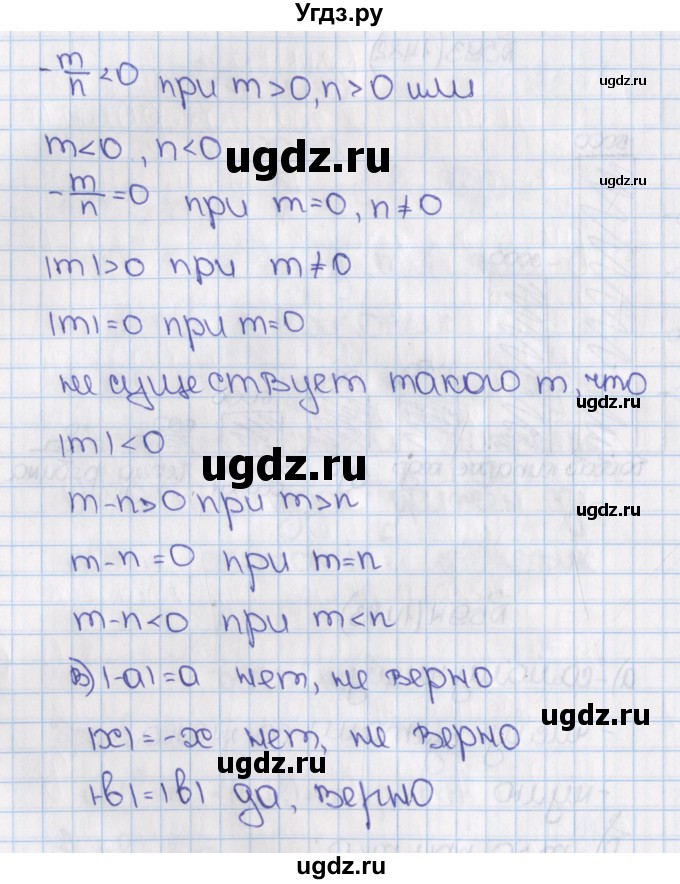 Угдз.ру
-m/n < 0 при m > 0, n > 0 или
ugdz.ru
m < 0, n < 0
ugdz.ru
-m/n = 0 при m = 0, n ≠ 0
ugdz.ru
|m| > 0 при m ≠ 0
|m| = 0 при m = 0
не существует такого m, что
ugdz.ru
|m| < 0
ugdz.ru
m - n > 0 при m > n
ugdz.ru
m - n = 0 при m = n
m - n < 0 при m < n
в) |-a| = a нет, не верно
ugdz.ru
|x| = -x нет, не верно
ugdz.ru
|-в| = |в| да, верно
ugdz.ru